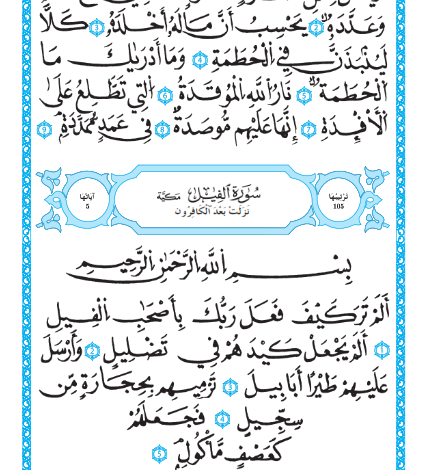 وَعَدَّدَهُۥ 2 يَحْسَبُ أَنَّ مَالَهُۥٓ أَخْلَدَهُۥ 3 كَلَّا
لَيُنۢبَذَنَّ فِي الْحُطَمَةِ 4 وَمَآ أَدْرَىٰكَ مَا
الْحُطَمَةُ 5 نَارُ اللَّهِ الْمُوقَدَةُ 6 الَّتِي تَطَّلِعُ عَلَى
الْأَفْـِٔدَةِ 7 إِنَّهَا عَلَيْهِم مُّوصَدَةٌ 8 فِي عَمَدٍ مُّمَدَّدَةٍۭ 9
تَرْتِيبُهَا 105
سُورَةُ الْفِيلِ مَكِّيَّة
نَزَلَتْ بَعْدَ الْكَافِرُون
آيَاتُهَا 5
بِسْمِ اللَّهِ الرَّحْمَٰنِ الرَّحِيمِ
أَلَمْ تَرَ كَيْفَ فَعَلَ رَبُّكَ بِأَصْحَٰبِ الْفِيلِ
1 أَلَمْ يَجْعَلْ كَيْدَهُمْ فِي تَضْلِيلٍ 2 وَأَرْسَلَ
عَلَيْهِمْ طَيْرًا أَبَابِيلَ 3 تَرْمِيهِم بِحِجَارَةٍ مِّن
سِجِّيلٍ 4 فَجَعَلَهُمْ
كَعَصْفٍ مَّأْكُولٍۭ 5